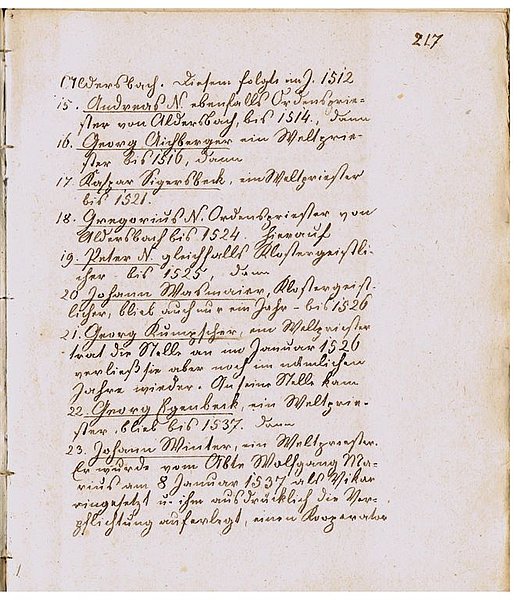 217
Aldersbach. Diesem folgte im J. 1512
15. Andreas N. ebenfalls Ordensprie-
ster von Aldersbach, bis 1514., dann
16. Georg Aichberger ein Weltprie-
ster bis 1516, dann
17. Kaspar Sigersbeck, ein Weltpriester
bis 1521.
18. Gregorius N. Ordenspriester von
Aldersbach bis 1524. hierauf
19. Peter N. gleichfalls Klostergeistli-
cher - bis 1525, dann
20 Johann Wasmaier, Klostergeist-
licher, blieb auch nur ein Jahr - bis 1526
21. Georg Kumpscher, ein Weltpriester
trat die Stelle an im Januar 1526
verließ sie aber noch im nämlichen
Jahre wieder. An seine Stelle kam
22. Georg Egenbeck, ein Weltprie-
ster, blieb bis 1537. dann
23. Johann Winter, ein Weltpriester.
Er wurde vom Abte Wolfgang Ma-
rius am 8 Januar 1537 als Vikar
eingesetzt u. ihm ausdrücklich die Ver-
pflichtung auferlegt, einen Kooperator